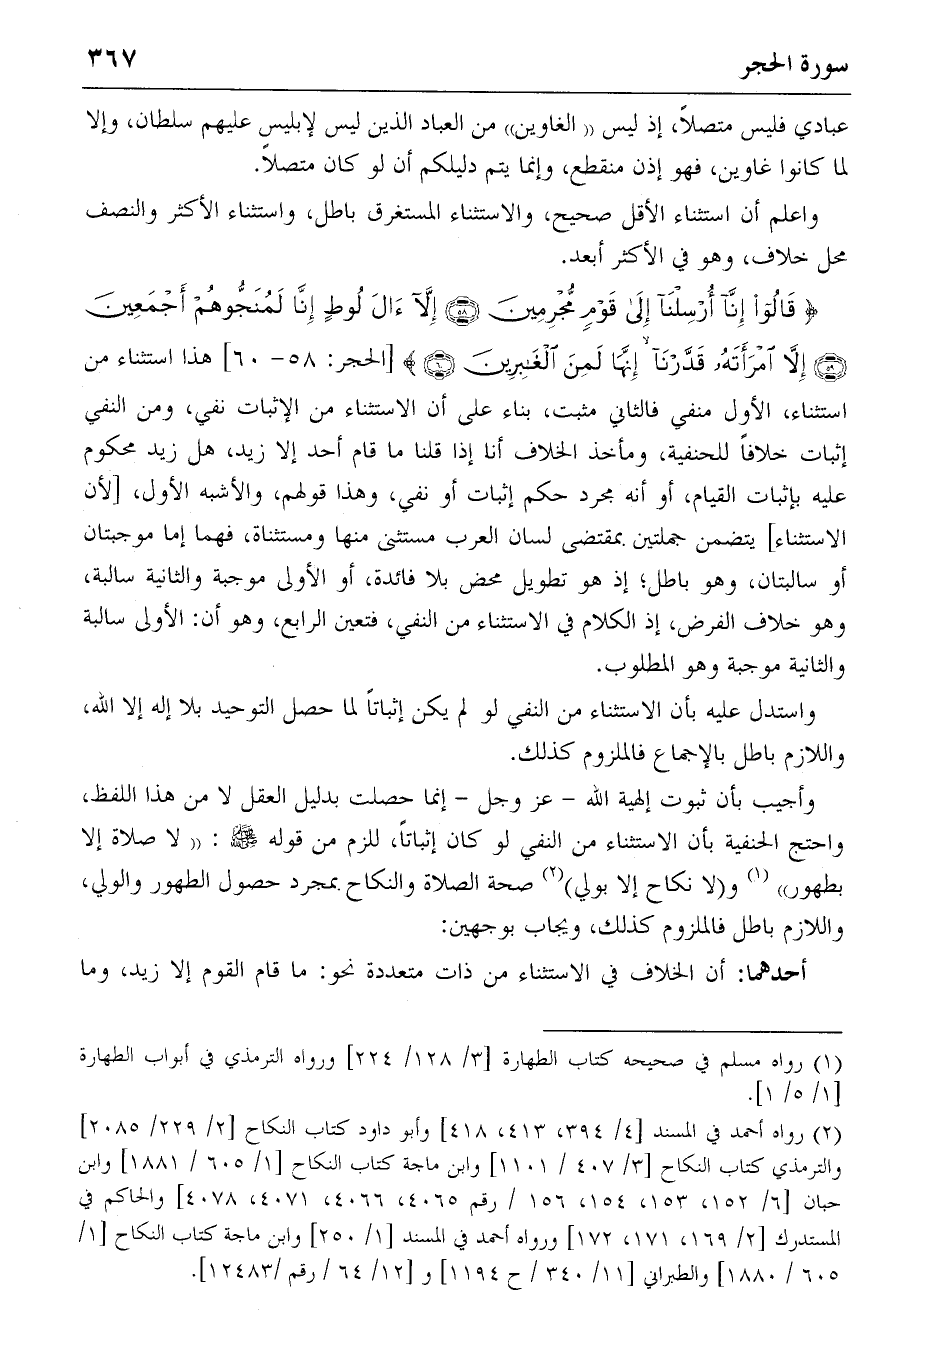 سورة الحجر ٣٦٧
عبادي فليس متصلاً، إذ ليس «الغاوين» من العباد الذين ليس لإبليس عليهم سلطان، وإلا
لما كانوا غاوين، فهو إذن منقطع، وإنما يتم دليلكم أن لو كان متصلاً.
واعلم أن استثناء الأقل صحيح، والاستثناء المستغرق باطل، واستثناء الأكثر والنصف
محل خلاف، وهو في الأكثر أبعد.
﴿ قَالُوٓاْ إِنَّآ أُرْسِلْنَآ إِلَىٰ قَوْمٍ مُّجْرِمِينَ ۝٥٨ إِلَّآ ءَالَ لُوطٍ إِنَّا لَمُنَجُّوهُمْ أَجْمَعِينَ
۝٥٩ إِلَّا ٱمْرَأَتَهُۥ قَدَّرْنَآ ۙ إِنَّهَا لَمِنَ ٱلْغَـٰبِرِينَ ۝٦٠ ﴾ [الحجر: ٥٨– ٦٠] هذا استثناء من
استثناء، الأول منفي فالثاني مثبت، بناء على أن الاستثناء من الإثبات نفي، ومن النفي
إثبات خلافاً للحنفية، ومأخذ الخلاف أنا إذا قلنا ما قام أحد إلا زيد، هل زيد محكوم
عليه بإثبات القيام، أو أنه مجرد حكم إثبات أو نفي، وهذا قولهم، والأشبه الأول، [لأن
الاستثناء] يتضمن جملتين بمقتضى لسان العرب مستثنى منها ومستثناة، فهما إما موجبتان
أو سالبتان، وهو باطل؛ إذ هو تطويل محض بلا فائدة، أو الأولى موجبة والثانية سالبة،
وهو خلاف الفرض، إذ الكلام في الاستثناء من النفي، فتعين الرابع، وهو أن: الأولى سالبة
والثانية موجبة وهو المطلوب.
واستدل عليه بأن الاستثناء من النفي لو لم يكن إثباتاً لما حصل التوحيد بلا إله إلا الله،
واللازم باطل بالإجماع فالملزوم كذلك.
وأجيب بأن ثبوت إلهية الله – عز وجل – إنما حصلت بدليل العقل لا من هذا اللفظ،
واحتج الحنفية بأن الاستثناء من النفي لو كان إثباتاً، للزم من قوله ﷺ : «لا صلاة إلا
بطهور» (١) و(لا نكاح إلا بولي)(٢) صحة الصلاة والنكاح بمجرد حصول الطهور والولي،
واللازم باطل فالملزوم كذلك، ويجاب بوجهين:
أحدهما: أن الخلاف في الاستثناء من ذات متعددة نحو: ما قام القوم إلا زيد، وما
(١) رواه مسلم في صحيحه كتاب الطهارة [٣/ ١٢٨/ ٢٢٤] ورواه الترمذي في أبواب الطهارة
[١/ ٥/ ١].
(٢) رواه أحمد في المسند [٤/ ٣٩٤، ٤١٣، ٤١٨] وأبو داود كتاب النكاح [٢/ ٢٢٩/ ٢٠٨٥]
والترمذي كتاب النكاح [٣/ ٤٠٧ / ١١٠١] وابن ماجة كتاب النكاح [١/ ٦٠٥ / ١٨٨١] وابن
حبان [٦/ ١٥٢، ١٥٣، ١٥٤، ١٥٦ / رقم ٤٠٦٥، ٤٠٦٦، ٤٠٧١، ٤٠٧٨] والحاكم في
المستدرك [٢/ ١٦٩، ١٧١، ١٧٢] ورواه أحمد في المسند [١/ ٢٥٠] وابن ماجة كتاب النكاح [١/
٦٠٥ / ١٨٨٠] والطبراني [١١/ ٣٤٠ / ح ١١٩٤] و [١٢/ ٦٤ / رقم /١٢٤٨٣].